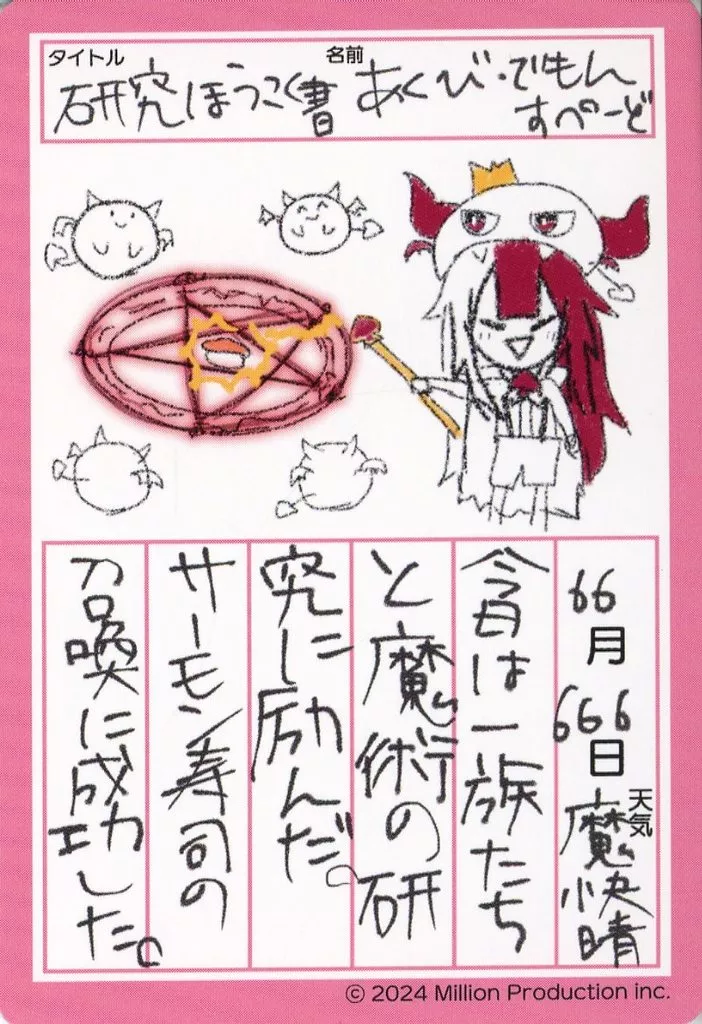 タイトル
研究ほうこく書
名前
あくび・でもん
すぺーど
66月666日 天気 魔快晴
今日は一族たち
と魔術の研
究に励んだ。
サーモン寿司の
召喚に成功した。
© 2024 Million Production inc.